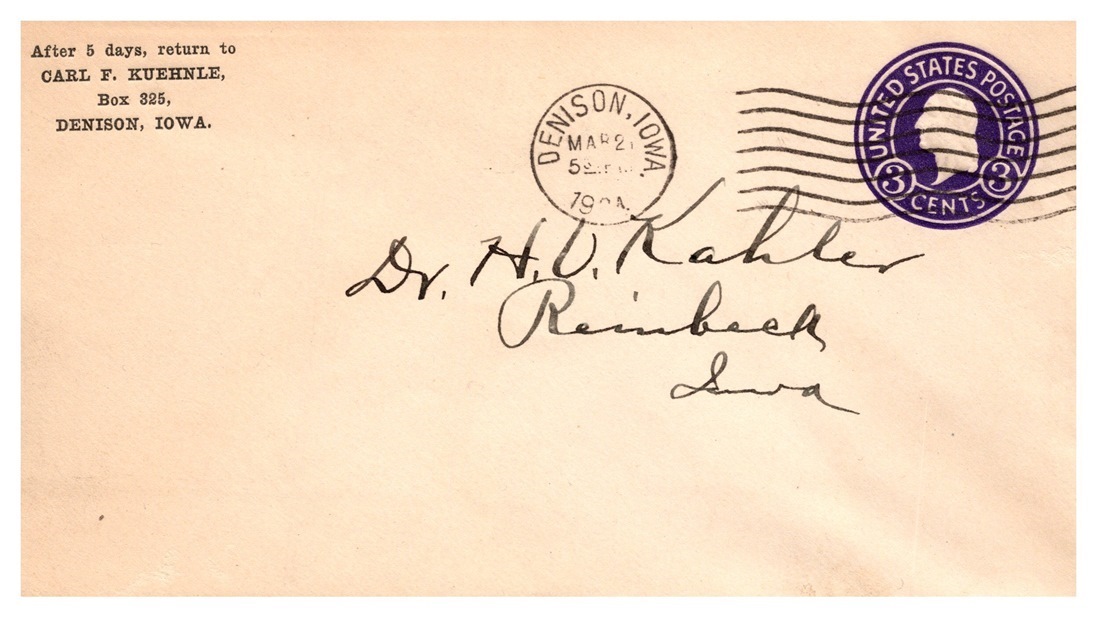 After 5 days, return to
CARL F. KUEHNLE,
Box 325,
DENISON, IOWA.
DENISON, IOWA.
MAR 21
UNITED STATES POSTAGE
3 CENTS 3
Dr. H. V. Kahler
Reinbeck
Iowa